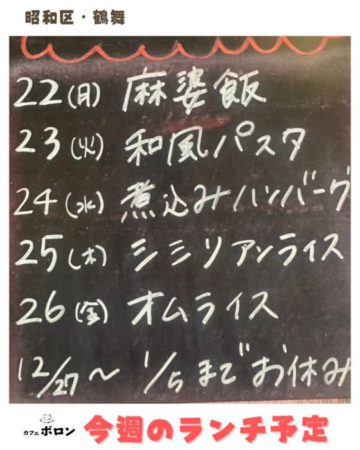 昭和区・鶴舞
22(月) 麻婆飯
23(火) 和風パスタ
24(水) 煮込みハンバーグ
25(木) シシリアンライス
26(金) オムライス
12/27〜1/5までお休み
カフェ ボロン 今週のランチ予定